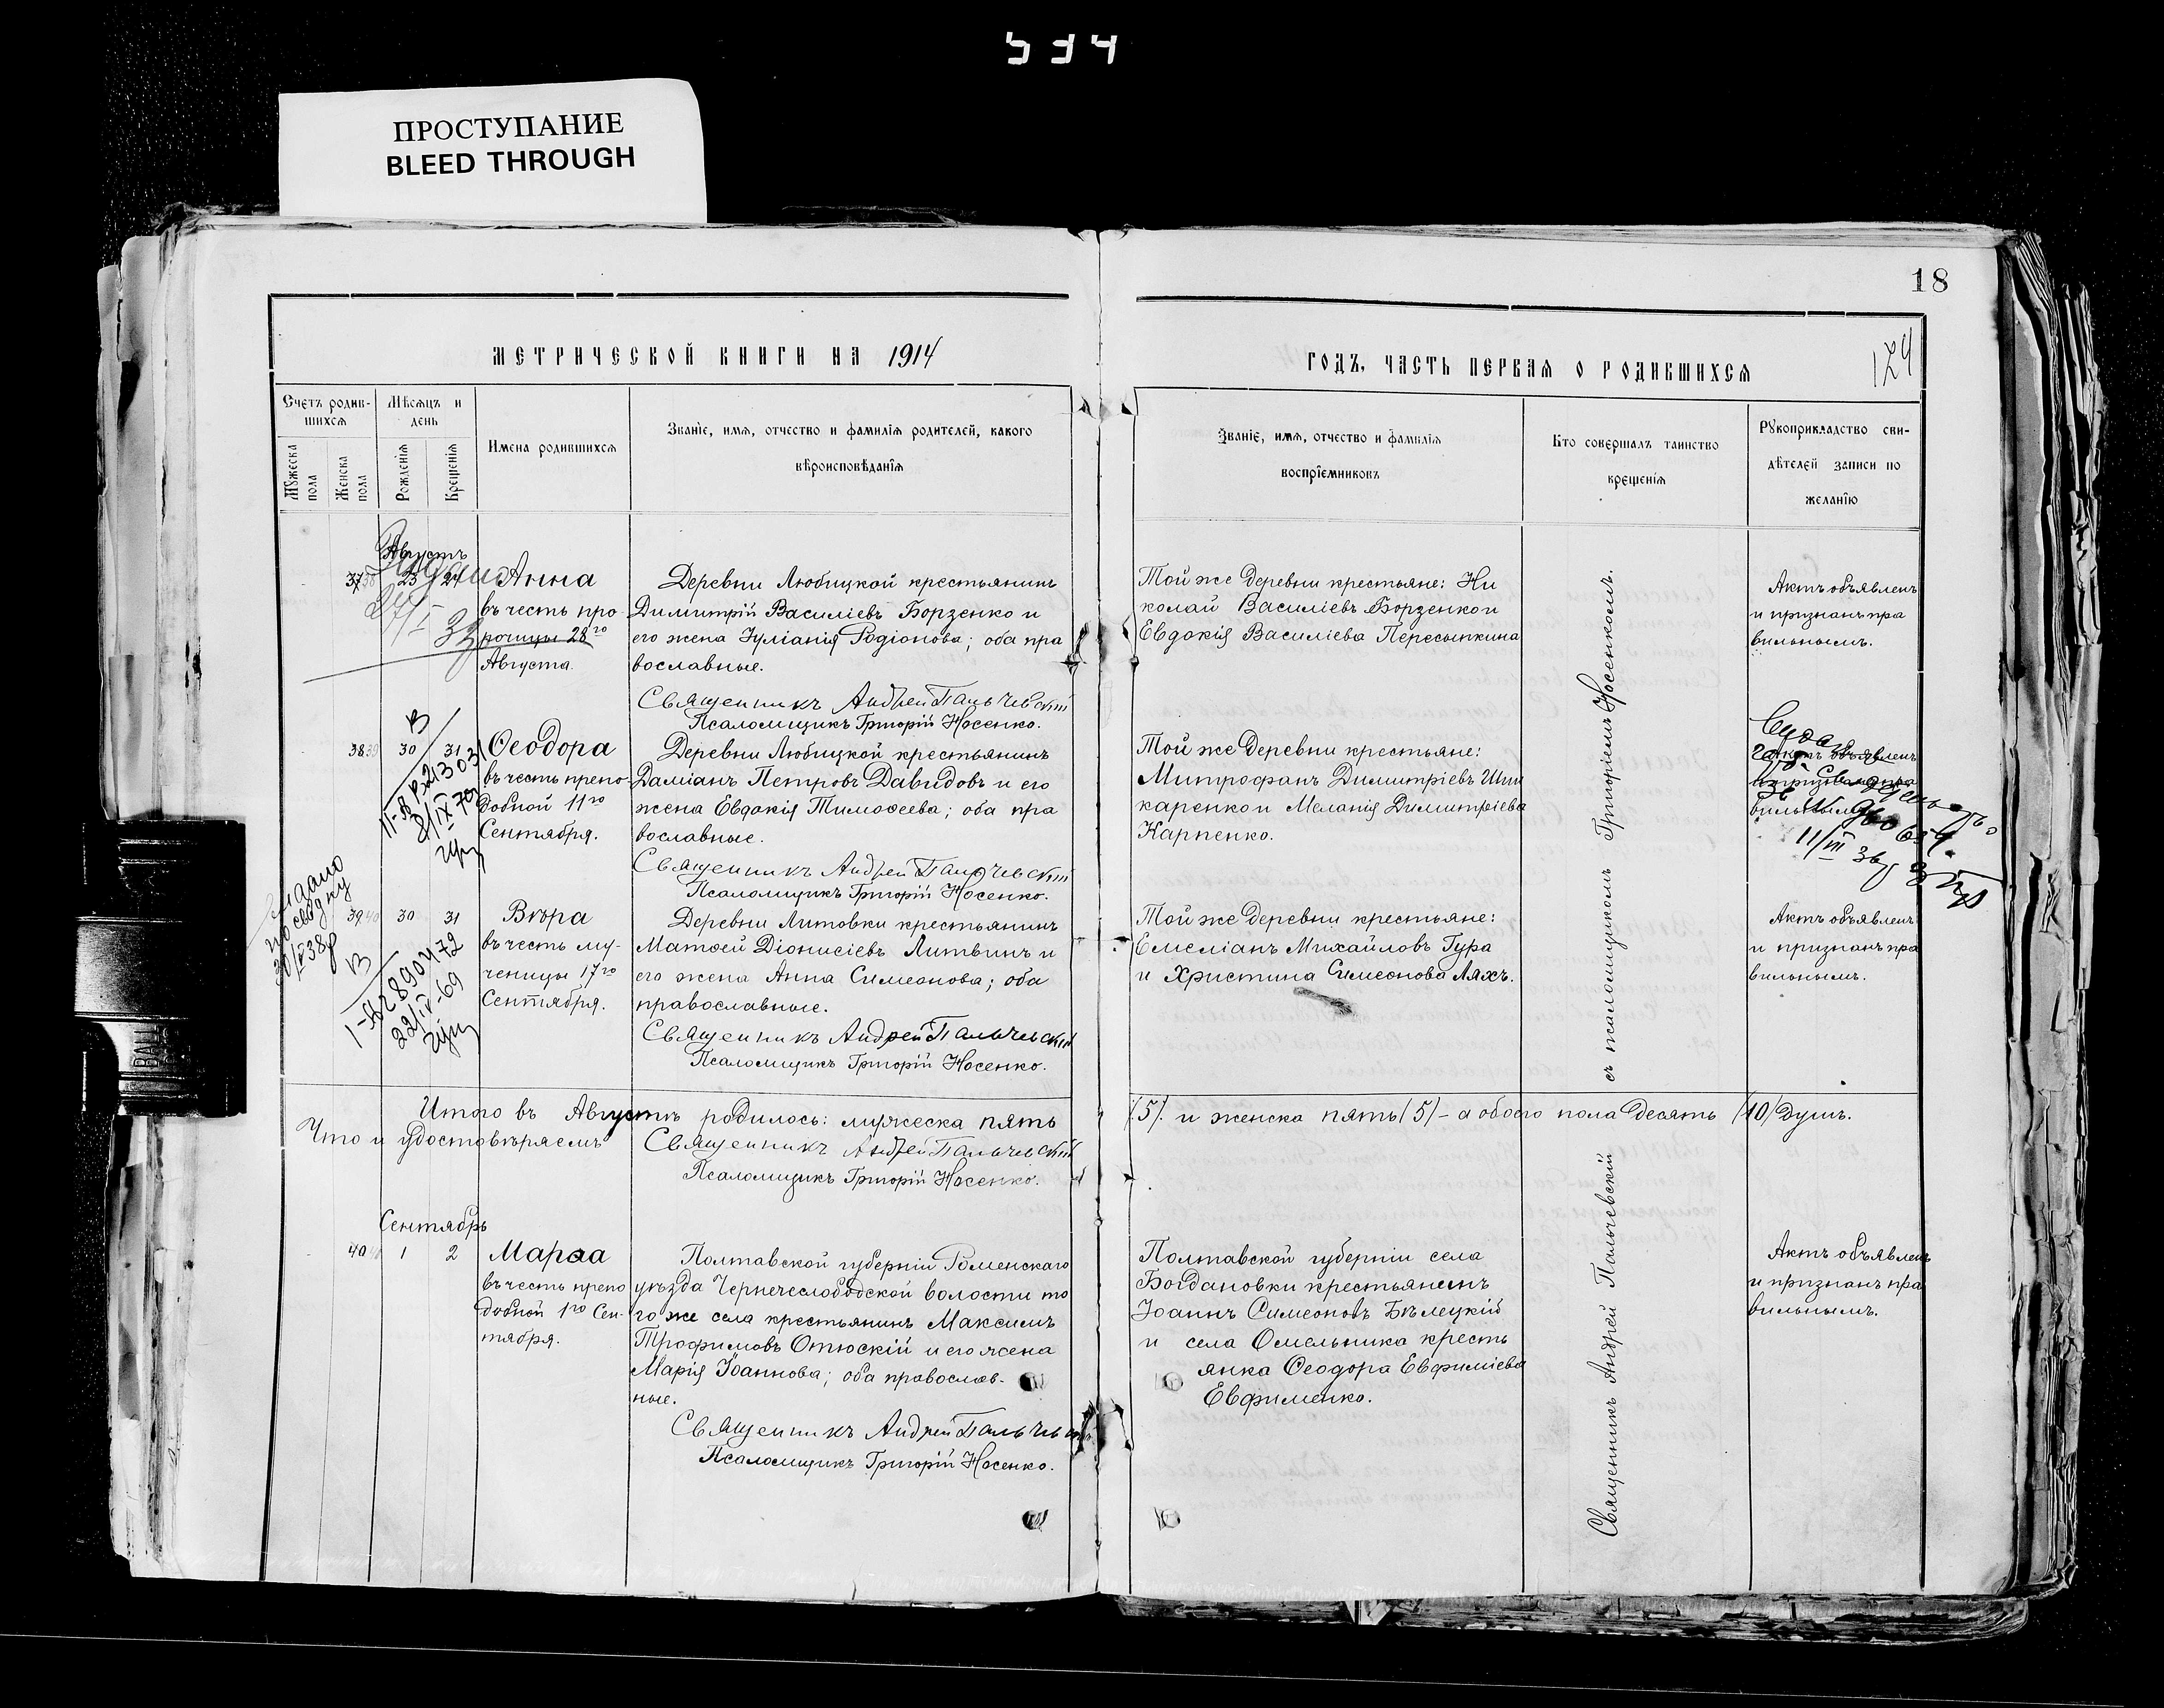 534
ПРОСТУПАНИЕ
BLEED THROUGH
18
124
МЕТРИЧЕСКОЙ КНИГИ НА 1914
ГОДЪ, ЧАСТЬ ПЕРВАЯ О РОДИВШИХСЯ
Счетъ родив-
шихся
Мѣсяцъ и
день
Мужеска пола
Женска пола
Рожденія
Крещенія
Имена родившихся
Званіе, имя, отчество и фамилія родителей, какого
вѣроисповѣданія
Званіе, имя, отчество и фамилія
воспріемниковъ
Кто совершалъ таинство
крещенія
Рукоприкладство сви-
дѣтелей записи по
желанію
Августъ
37 23 24 Анна
въ честь про-
рочицы 28го
Августа.
Деревни Любицкой крестьянинъ
Димитрій Василіевъ Борзенко и
его жена Іуліанія Родіонова; оба пра
вославные.
Священникъ Андрей Пальчевскій
Псаломщикъ Григорій Носенко.
Той же деревни крестьяне: Ни
колай Василіевъ Борзенко и
Евдокія Василіева Пересыпкина
Актъ объявленъ
и признанъ пра
вильнымъ.
38 30 31 Ѳеодора
въ честь препо-
добной 11го
Сентября.
Деревни Любицкой крестьянинъ
Даміанъ Петровъ Давидовъ и его
жена Евдокія Тимоѳеева; оба пра
вославные.
Священникъ Андрей Пальчевскій
Псаломщикъ Григорій Носенко.
Той же деревни крестьяне:
Митрофанъ Димитріевъ Шин
каренко и Меланія Димитріева
Карпенко.
Актъ объявленъ
и признанъ пра
вильнымъ
11/III 36
39 30 31 Вѣра
въ честь му-
ченицы 17го
Сентября.
Деревни Литовки крестьянинъ
Матѳей Діонисіевъ Литвинъ и
его жена Анна Симеонова; оба
православные.
Священникъ Андрей Пальчевскій
Псаломщикъ Григорій Носенко.
Той же деревни крестьяне:
Емеліанъ Михайловъ Гура
и Христина Симеонова Ляхъ.
Актъ объявленъ
и признанъ пра
вильнымъ.
22/IV-69
Итого въ Августѣ родилось: мужеска пять
/5/ и женска пять /5/ - а обоего пола десять /10/ душъ.
Что и удостовѣряемъ
Священникъ Андрей Пальчевскій
Псаломщикъ Григорій Носенко.
Сентябрь
40 1 2 Марѳа
въ честь препо
добной 1го Сен-
тября.
Полтавской губерніи Роменскаго
уѣзда Чернечеслободской волости то
го же села крестьянинъ Максимъ
Трофимовъ Отюскій и его жена
Марія Іоаннова; оба православ-
ные.
Священникъ Андрей Пальчевскій
Псаломщикъ Григорій Носенко.
Полтавской губерніи села
Богдановки крестьянинъ
Іоаннъ Симеоновъ Бѣлецкій
и села Омельника кресть
янка Ѳеодора Евфиміева
Евфименко.
Актъ объявленъ
и признанъ пра
вильнымъ.
Священникъ Андрей Пальчевскій
съ псаломщикомъ Григоріемъ Носенкомъ.